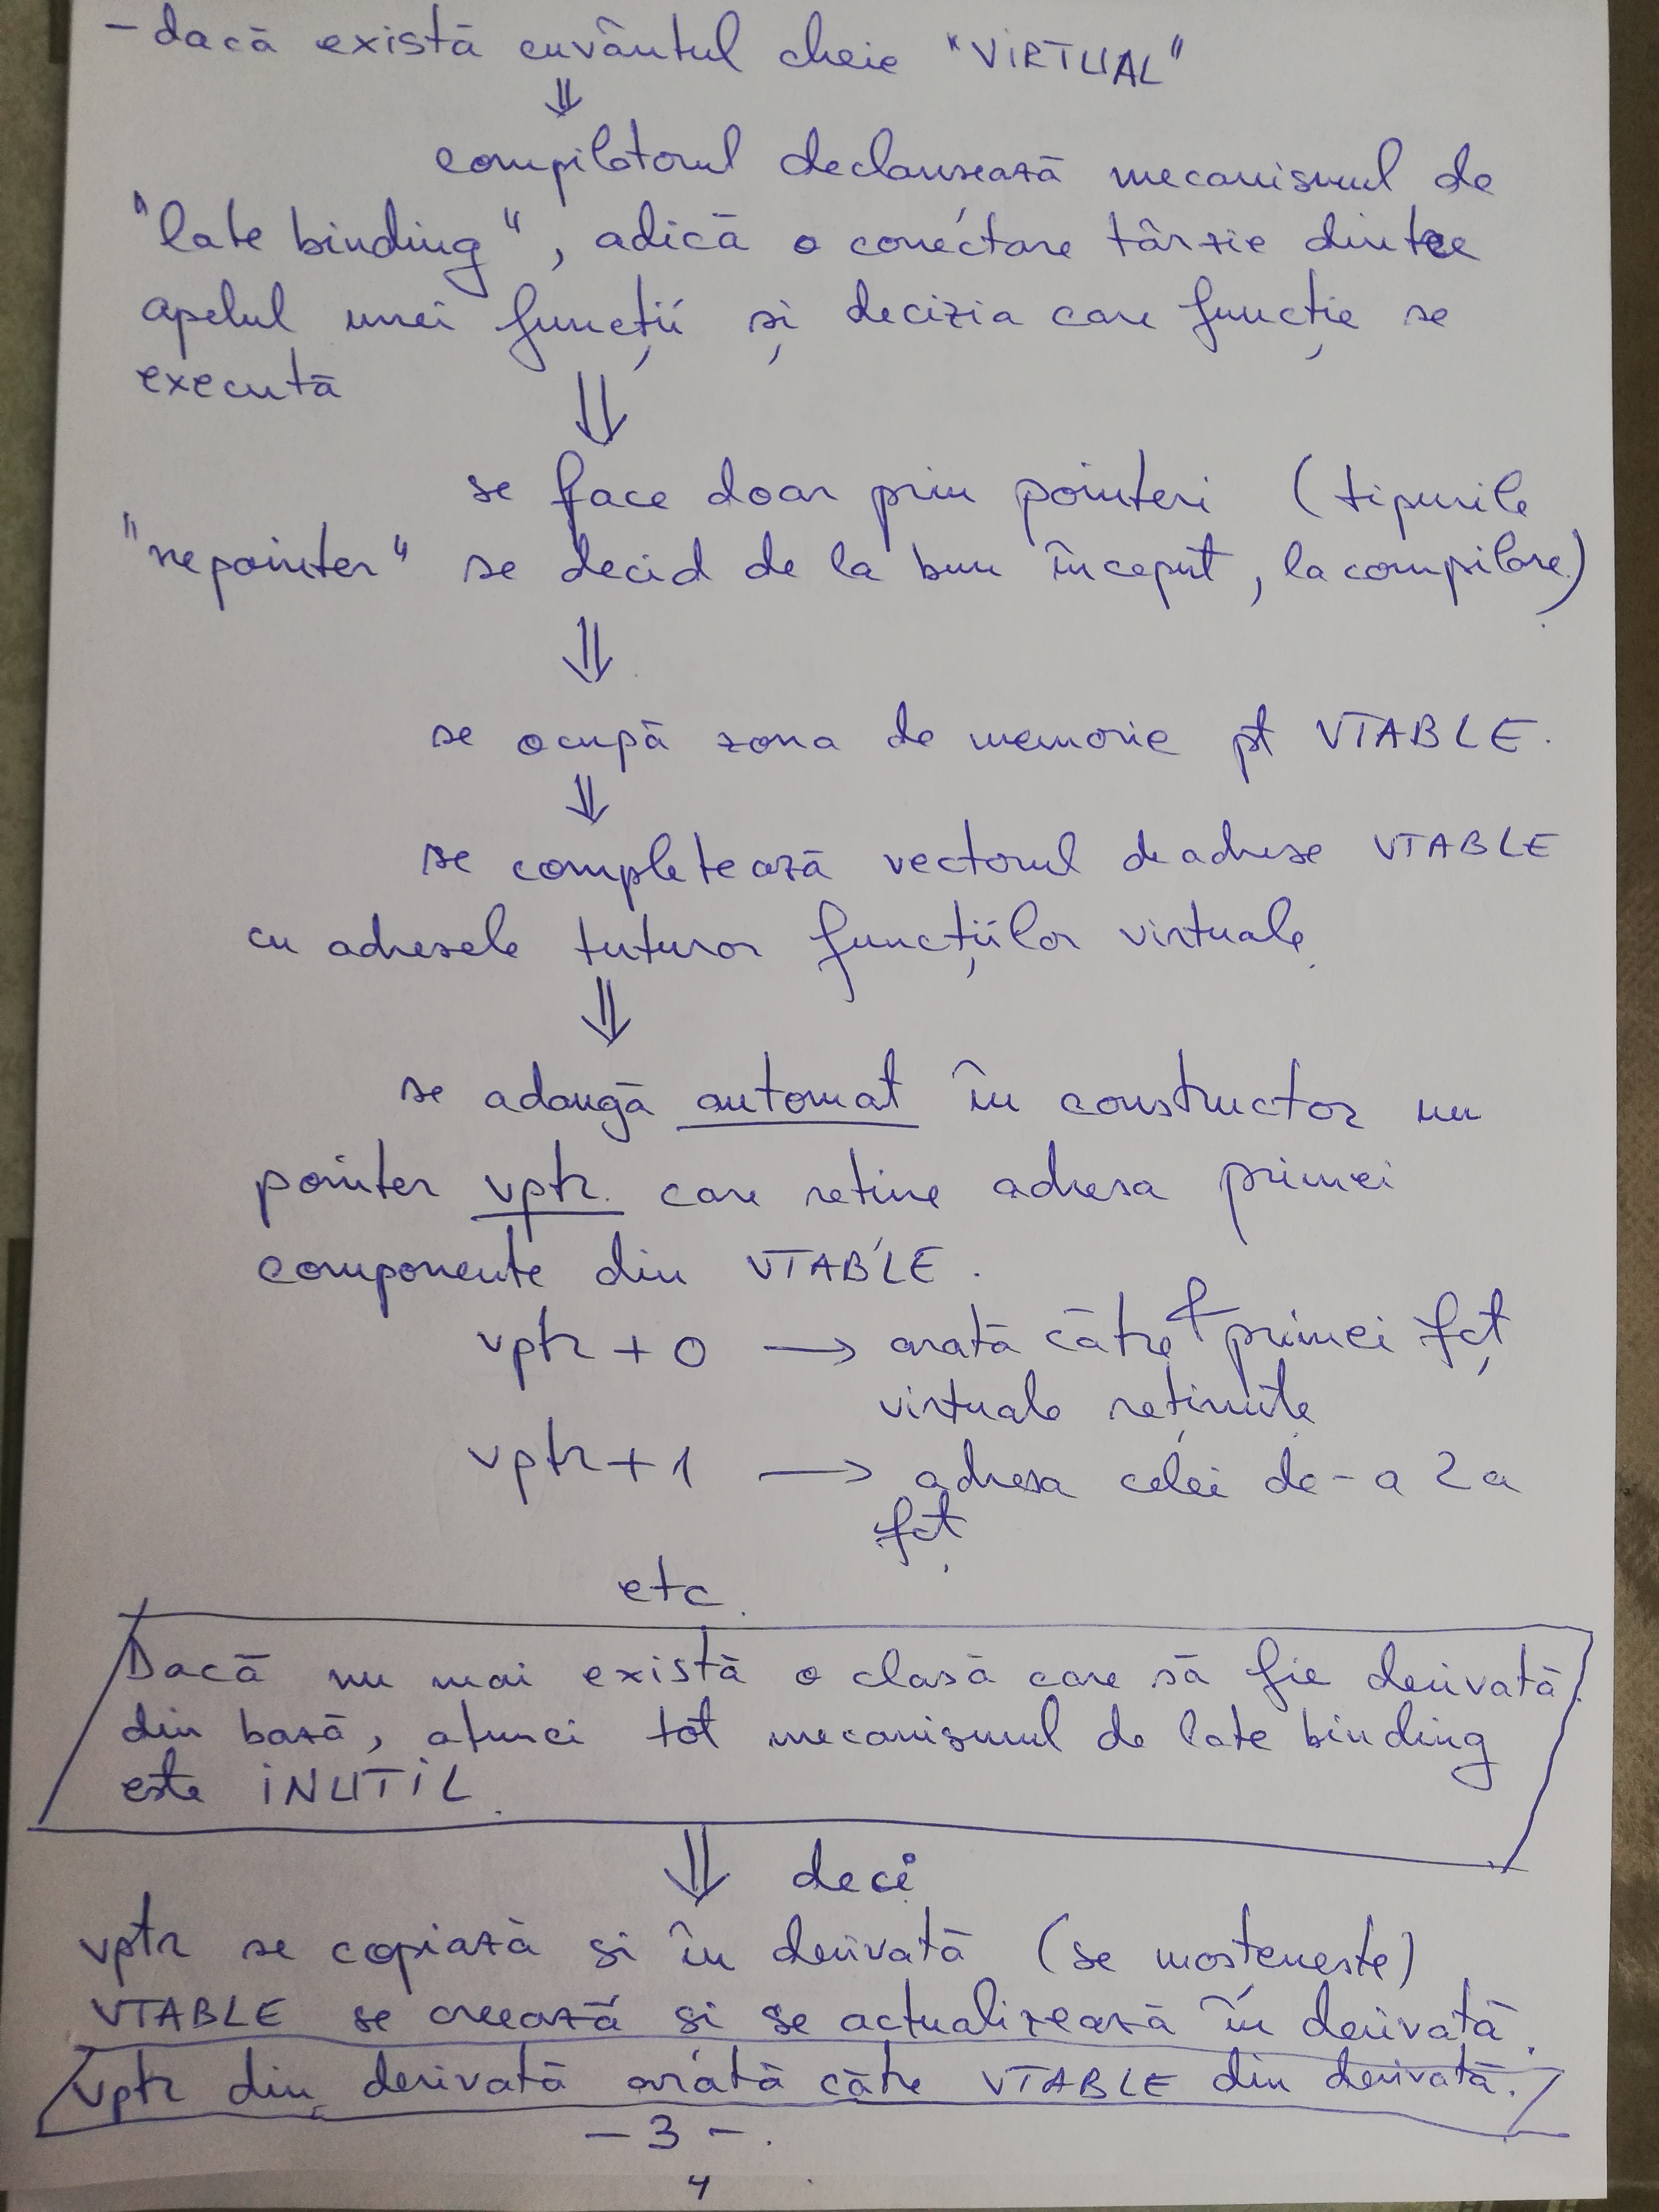 - dacă există cuvântul cheie "VIRTUAL"
⇓
compilatorul declansează mecanismul de
"late binding", adică o conectare târzie dintre
apelul unei funcții și decizia care funcție se
execută
⇓
se face doar prin pointeri (tipurile
"nepointer" se decid de la bun început, la compilare)
⇓
se ocupă zona de memorie pt VTABLE.
⇓
se completează vectorul de adrese VTABLE
cu adresele tuturor funcțiilor virtuale.
⇓
se adaugă automat în constructor un
pointer vptr. care retine adresa primei
componente din VTABLE.
vptr + 0 → arată către primei fcț
virtuale reținute
vptr + 1 → adresa celei de-a 2a
fcț
etc.
Dacă nu mai există o clasă care să fie derivată
din bază, atunci tot mecanismul de late binding
este INUTIL.
⇓ deci
vptr se copiază si în derivată (se mosteneste)
VTABLE se creează si se actualizează în derivată.
vptr din derivată arată către VTABLE din derivată.
- 3 -.
4